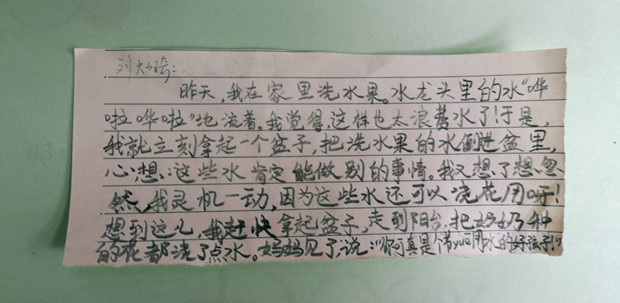 刘大绮:
昨天,我在家里洗水果。水龙头里的水“哗
啦哗啦”地流着。我觉得这样也太浪费水了!于是,
我就立刻拿起一个盆子,把洗水果的水倒进盆里,
心想:这些水肯定能做别的事情。我又想了想,忽
然,我灵机一动,因为这些水还可以浇花用呀!
想到这儿,我赶快拿起盆子,走到阳台,把奶奶种
的花都浇了点水。妈妈见了说:“你可真是个节yuē用水的好孩子!”